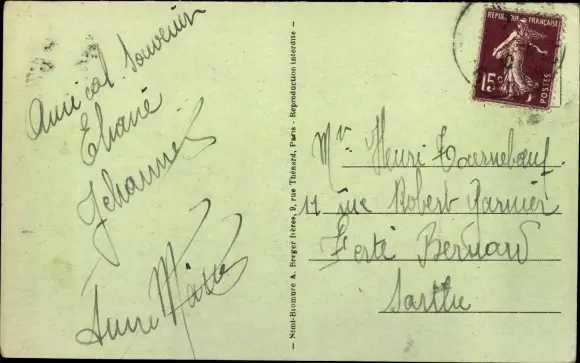 Amical Souvenir
Eliane
Jehannet
Anne
— Simi-Bromure A. Breger frères, 9, rue Thénard, Paris - Reproduction interdite —
REPUBLIQUE FRANÇAISE
15c
POSTES
Mr Henri
11 rue Robert Garnier
Ferté Bernard
Sarthe